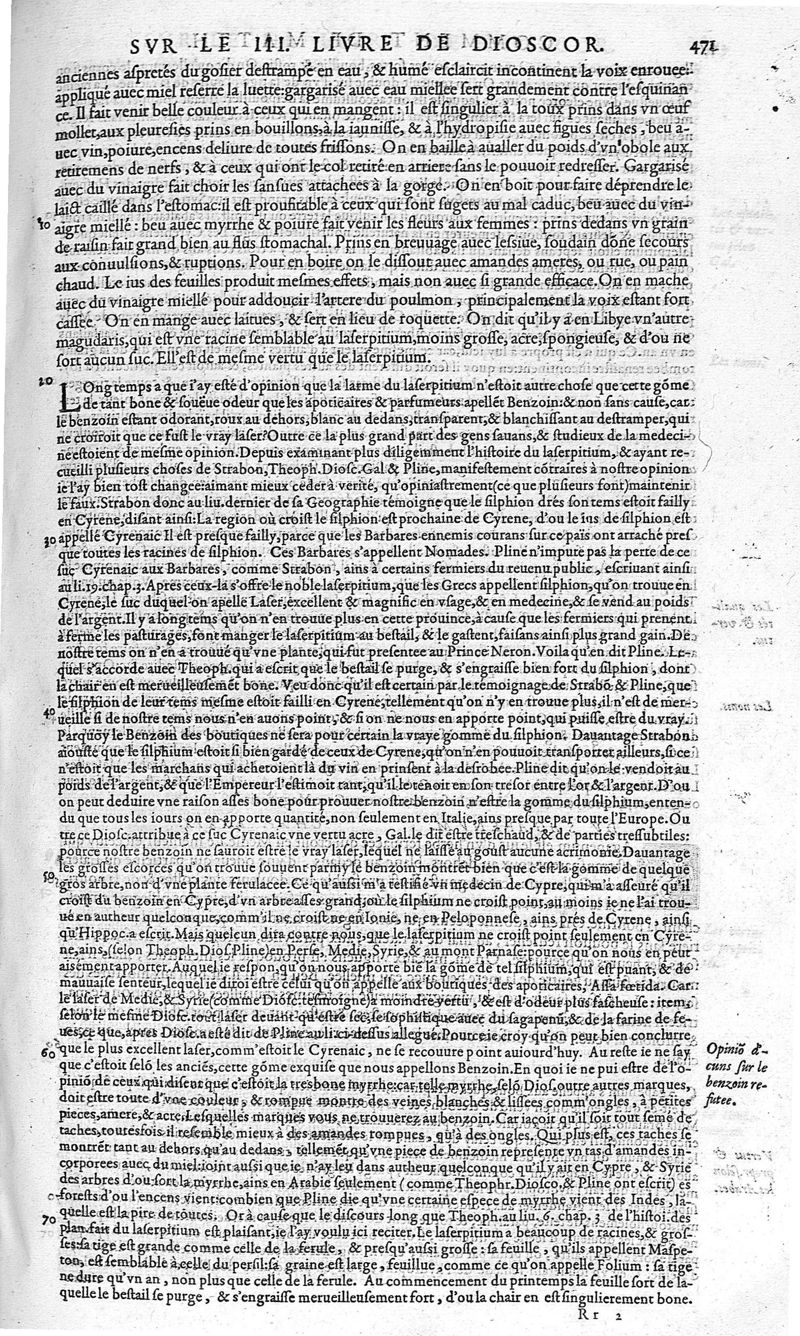 SVR LE III. LIVRE DE DIOSCOR. 471
anciennes aspretés du gosier destrampé en eau, & humé esclaircit incontinent la voix enrouee:
appliqué auec miel reserre la luette: gargarisé auec eau miellee sert grandement contre l'esquinan
ce. Il fait venir belle couleur à ceux qui en mangent: il est singulier à la toux prins dans vn œuf
mollet, aux pleuresies prins en bouillons, à la iaunisse, & à l'hydropisie auec figues seches, beu a-
uec vin, poiure, encens deliure de toutes frissons. On en baille à aualler du poids d'vn obole aux
retiremens de nerfs, & à ceux qui ont le col retiré en arriere sans le pouuoir redresser. Gargarisé
auec du vinaigre fait choir les sansues attachees à la gorge. On en boit pour faire déprendre le
laict caillé dans l'estomac: il est proufitable à ceux qui sont sugets au mal caduc, beu auec du vin-
10 aigre miellé: beu auec myrrhe & poiure fait venir les fleurs aux femmes: prins dedans vn grain
de raisin fait grand bien au flus stomachal. Prins en breuuage auec lessiue, soudain donc secours
aux conuulsions, & ruptions. Pour en boire on le dissout auec amandes ameres, ou rue, ou pain
chaud. Le ius des feuilles produit mesmes effets, mais non auec si grande efficace. On en mache
auec du vinaigre miellé pour addoucir l'artere du poulmon, principalement la voix estant fort
cassee. On en mange auec laitues, & sert en lieu de roquette. On dit qu'il y a en Libye vn'autre
magudaris, qui est vne racine semblable au laserpitium, moins grosse, acre, spongieuse, & d'ou ne
sort aucun suc. Ell'est de mesme vertu que le laserpitium.
20 LOng temps a que i'ay esté d'opinion que la larme du laserpitium n'estoit autre chose que cette gôme
de tant bone & souëue odeur que les apoticaires & parfumeurs apellét Benzoin: & non sans cause, car
le benzoin estant odorant, roux au dehors, blanc au dedans, transparent, & blanchissant au destramper, qui
ne croiroit que ce fust le vray laser? Outre ce la plus grand part des gens sauans, & studieux de la medeci-
ne estoient de mesme opinion. Depuis examinant plus diligemment l'histoire du laserpitium, & ayant re-
cueilli plusieurs choses de Strabon, Theoph. Diosc. Gal & Pline, manifestement côtraires à nostre opinion
ie l'ay bien tost changee: aimant mieux ceder à verité, qu'opiniastrement (ce que plusieurs font) maintenir
le faux. Strabon donc au liu. dernier de sa Geographie témoigne que le silphion drés son tems estoit failly
en Cyrene, disant ainsi: La region où croist le silphion est prochaine de Cyrene, d'ou le ius de silphion est
30 appellé Cyrenaic Il est presque failly, parce que les Barbares ennemis courans sur ce païs ont arraché pres
que toutes les racines de silphion. Ces Barbares s'appellent Nomades. Pline n'impute pas la perte de ce
suc Cyrenaic aux Barbares, comme Strabon, ains à certains fermiers du reuenu public, escriuant ainsi
au li. 19. chap. 3. Apres ceux-là s'offre le noble laserpitium, que les Grecs appellent silphion, qu'on trouue en
Cyrene, le suc duquel on apelle Laser, excellent & magnific en vsage, & en medecine, & se vend au poids
de l'argent. Il y a long tems qu'on n'en trouue plus en cette prouince, à cause que les fermiers qui prenent
à ferme les pasturages, font manger le laserpitium au bestail, & le gastent, faisans ainsi plus grand gain. De
nostre tems on n'en a trouué qu'vne plante, qui fut presentee au Prince Neron. Voila qu'en dit Pline. Le-
quel s'accorde auec Theoph. qui a escrit que le bestail se purge, & s'engraisse bien fort du silphion, dont
la chair en est merueilleusemét bone. Veu donc qu'il est certain par le témoignage de Strabô & Pline, que
le silphion de leur tems mesme estoit failli en Cyrene, tellement qu'on n'y en trouue plus, il n'est de mer-
40 ueille si de nostre tems nous n'en auons point, & si on ne nous en apporte point, qui puisse estre du vray.
Parquoy le Benzoin des boutiques ne sera pour certain la vraye gomme du silphion. Dauantage Strabon
aiouste que le silphium estoit si bien gardé de ceux de Cyrene, qu'on n'en pouuoit transporter ailleurs, si ce
n'estoit que les marchans qui achetoient là du vin en prinsent à la desrobee. Pline dit qu'on le vendoit au
poids de l'argent, & que l'Empereur l'estimoit tant, qu'il le tenoit en son tresor entre l'or & l'argent. D'ou
on peut deduire vne raison asses bone pour prouuer nostre benzoin n'estre la gomme du silphium, enten-
du que tous les iours on en apporte quantité, non seulement en Italie, ains presque par toute l'Europe. Ou
tre ce Diosc. attribue à ce suc Cyrenaic vne vertu acre, Gal. le dit estre treschaud, & de parties tressubtiles:
pource nostre benzoin ne sauroit estre le vray laser, lequel ne laisse au goust aucune acrimonie. Dauantage
les grosses escorces qu'on trouue souuent parmy le benzoin montrét bien que c'est la gomme de quelque
50 gros arbre, non d'vne plante ferulacee. Ce qu'aussi m'a testifié vn medecin de Cypre, qui m'a asseuré qu'il
croist du benzoin en Cypre, d'vn arbre asses grand, ou le silphium ne croist point, au moins ie ne l'ai trou-
ué en autheur quelconque, comm'il ne croist ne en Ionie, ne en Peloponnese, ains prés de Cyrene, ainsi
qu'Hippoc. a escrit. Mais quelcun dira contre nous, que le laserpitium ne croist point seulement en Cyre-
ne, ains, (selon Theoph. Dios. Pline) en Perse, Medie, Syrie, & au mont Parnase: pource qu'on nous en peut
aisement apporter. Auquel ie respon, qu'on nous apporte bié la gôme de tel silphium, qui est puant, & de
mauuaise senteur, lequel ie diroi estre celui qu'on appelle aux boutiques des apoticaires, Assa fœtida. Car
le laser de Medie, & Syrie (comme Diosc. témoigne) a moindre vertu, & est d'odeur plus fascheuse: item,
selon le mesme Diosc. tout laser deuant qu'estre sec, se sophistique auec du sagapenû, & de la farine de fe-
ues, ce que, apres Diosc. a esté dit de Pline au li. ci dessus allegué. Pource ie croy qu'on peut bien conclurre
60 que le plus excellent laser, comm'estoit le Cyrenaic, ne se recouure point auiourd'huy. Au reste ie ne say
que c'estoit selô les anciés, cette gôme exquise que nous appellons Benzoin. En quoi ie ne pui estre de l'o-
pinió de ceux qui disent que c'estoit la tresbone myrrhe: car telle myrrhe, selô Dios. outre autres marques,
doit estre toute d'vne couleur, & rompue montre des veines blanches & lissees comm'ongles, à petites
pieces, amere, & acre. Lesquelles marques vous ne trouuerez au benzoin. Car iaçoit qu'il soit tout semé de
taches, toutesfois il resemble mieux à des amandes rompues, qu'à des ongles. Qui plus est, ces taches se
montrét tant au dehors qu'au dedans, tellemét qu'vne piece de benzoin represente vn tas d'amandes in-
corporees auec du miel: ioint aussi que ie n'ay leu dans autheur quelconque qu'il y ait en Cypre, & Syrie
des arbres d'ou sort la myrrhe, ains en Arabie seulement (comme Theophr. Diosco, & Pline ont escrit) es
forests d'ou l'encens vient: combien que Pline die qu'vne certaine espece de myrrhe vient des Indes, la-
70 quelle est la pire de toutes. Or à cause que le discours long que Theoph. au liu. 6. chap. 3 de l'histoi. des
plan. fait du laserpitium est plaisant, ie l'ay voulu ici reciter. Le laserpitium a beaucoup de racines, & gros-
ses: sa tige est grande comme celle de la ferule, & presqu'aussi grosse: sa feuille, qu'ils appellent Maspe-
ton, est semblable à celle du persil: sa graine est large, feuillue, comme ce qu'on appelle Folium: sa tige
ne dure qu'vn an, non plus que celle de la ferule. Au commencement du printemps la feuille sort de la-
quelle le bestail se purge, & s'engraisse merueilleusement fort, d'ou la chair en est singulierement bone.
Rr 2
Opinió d'au-
cuns sur le
benzoin re-
futee.